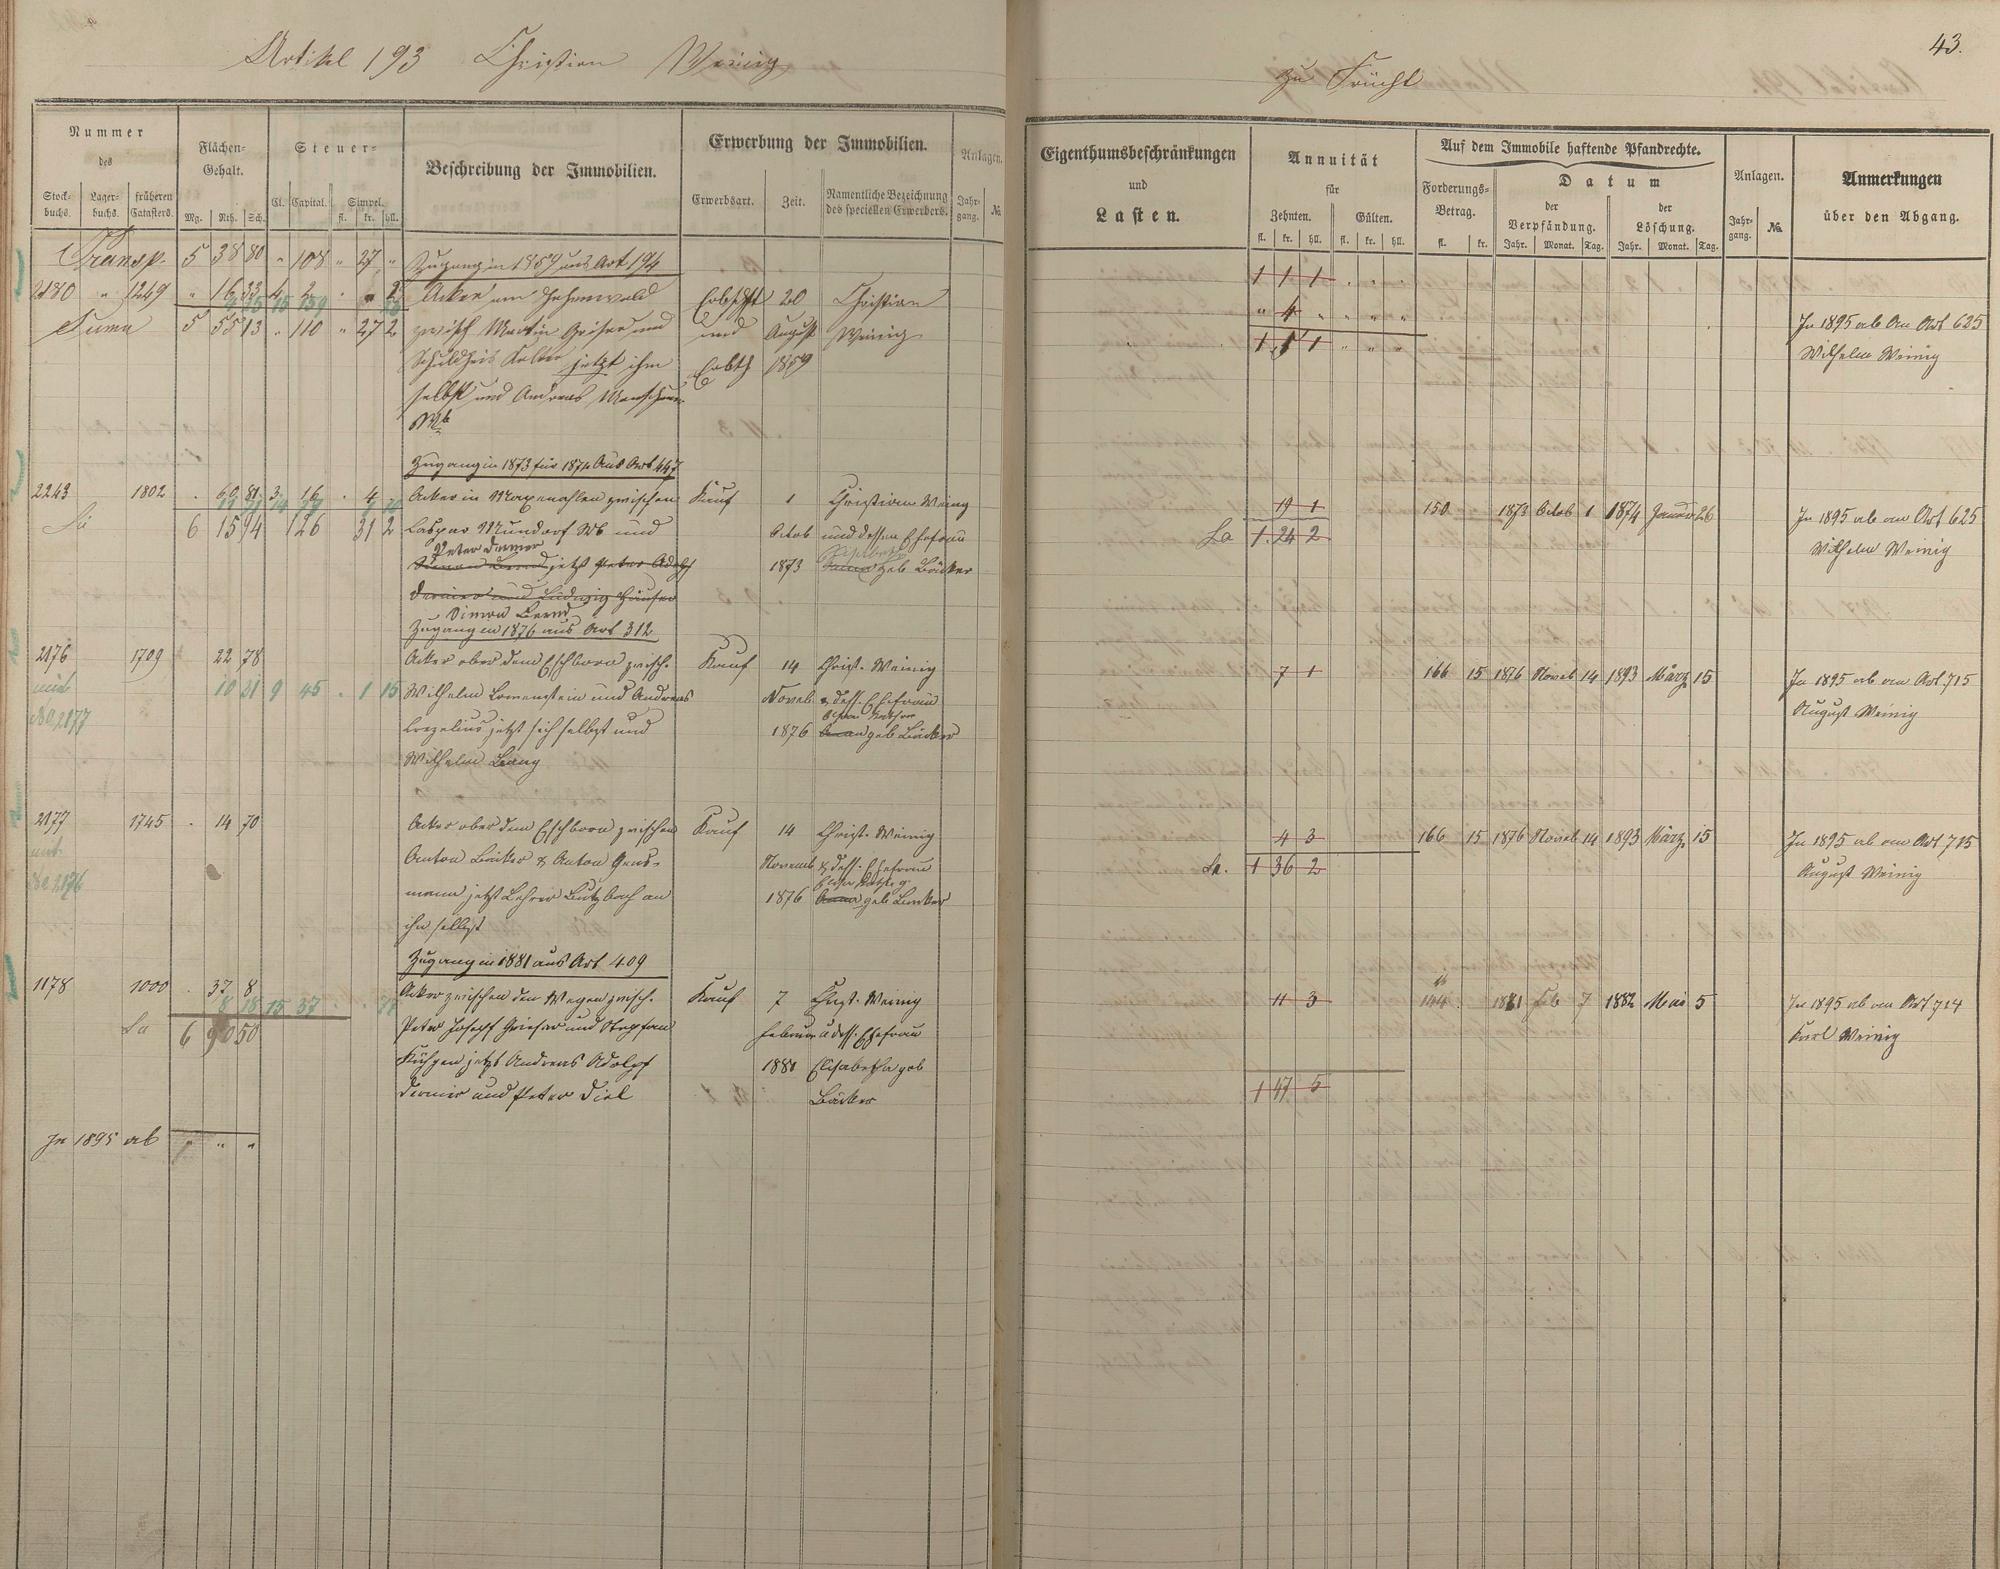 43.
Artikel 193 Christian Weinig
zu Frücht
Nummer
des
Stock-
buchs.
Lager-
buchs.
früheren
Catasters.
Flächen-
Gehalt.
Mg. Rth. Sch.
Steuer-
Cl. Capital. Simpel.
fl. kr. hll.
Beschreibung der Immobilien.
Erwerbung der Immobilien.
Erwerbsart. Zeit.
Namentliche Bezeichnung
des speciellen Erwerbers.
Anlagen.
Jahr-
gang.
№
Eigenthumsbeschränkungen
und
Lasten.
Annuität
für
Zehnten. Gülten.
fl. kr. hll. fl. kr. hll.
Auf dem Immobile haftende Pfandrechte.
Forderungs-
Betrag.
fl. kr.
Datum
der
Verpfändung.
Jahr. Monat. Tag.
der
Löschung.
Jahr. Monat. Tag.
Anlagen.
Jahr-
gang.
№.
Anmerkungen
über den Abgang.
Transp. 5 38 80 " 108 " 27 " Zugang in 1859 aus Art 194
1 1 1
2180 " 1249 " 16 33 4 2 " " 2 Acker am Hehenwald Erbschft 20 Christian
" 4 " " " "
Suma 5 55 13 " 110 " 27 2 zwisch Martin Grieser und und August Weinig
1 5 1 " " "
In 1895 ab an Art 625
Wilhelm Weinig
Schuldheis Kolter jetzt ihm Erbth 1859
selbst und Andreas
Mb
Zugang in 1873 für 1874 Aus Art. 447
2243 1802 . 60 81 3 16 . 4 Acker in zwischen Kauf 1 Christian Weinig
19 1 150 1873 Octob 1 1874 Januar 26 In 1895 ab an Art 625
Wilhelm Weinig
Sa 6 15 94 126 31 2 Caspar Mundorf Mb und Octob und dessen Ehefrau
Sa 1. 24 2
Peter Dermer
jetzt Peter Adolf 1873 Elisabeth geb Bäcker
Dermer und Ludwig Häuser
Simon Bernd
Zugang in 1876 aus Art 312
2176 1709 22 78 Acker ober dem Eschborn zwisch. Kauf 14 Christ. Weinig
7 1 166 15 1876 Noveb 14 1893 März 15 In 1895 ab an Art. 715
August Weinig
mit 10 21 9 45 . 1 15 Wilhelm Lowenstein und Andreas Noveb & dess. Ehefrau
No 2177 jetzt sich selbst und 1876 geb Bäcker
Wilhelm Lang
2177 1745 . 14 70 Acker ober dem Eschborn zwischen Kauf 14 Christ. Weinig
4 3 166 15 1876 Noveb 14 1893 März 15 In 1895 ab an Art 715
August Weinig
mit Anton Bäcker & Anton Gens- Novemb & dess. Ehefrau
Sa. 1 36 2
No 2176 mann jetzt Lehrer Butzbach an 1876 geb Baecker
ihn selbst
Zugang in 1881 aus Art 409
1178 1000 . 37 8 Acker zwischen den Wegen zwisch. Kauf 7 Christ. Weinig
11 3 144 . 1881 Feb 7 1882 Mai 5 In 1895 ab an Art. 714
Karl Weinig
8 18 15 37
Sa 6 90 50 Peter Joseph Grieser und Stephan Februar & dess. Ehefrau
jetzt Andreas Adolph 1881 Elisabetha geb
Dermer und Peter Diel Bäcker
1 47 5
In 1895 ab " " "